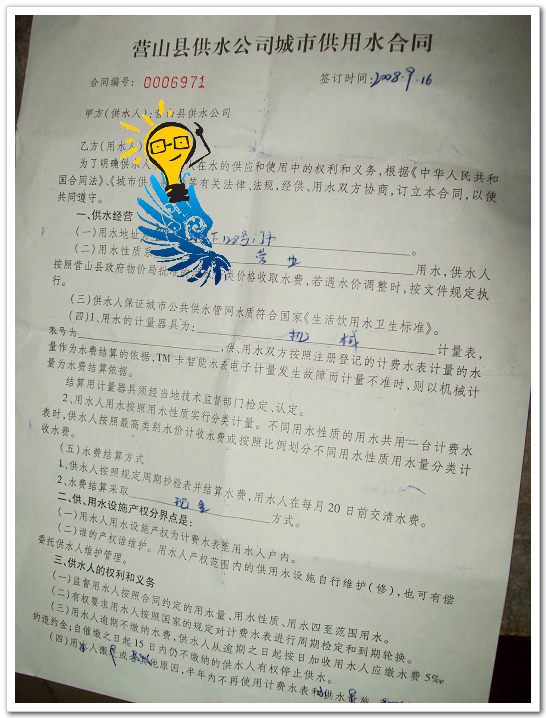 营山县供水公司城市供用水合同
合同编号: 0006971 签订时间: 2008.9.16
甲方(供水人):营山县供水公司
乙方(用水人
为了明确供水人 在水的供应和使用中的权利和义务,根据《中华人民共和
国合同法》、《城市供 等有关法律、法规,经供、用水双方协商,订立本合同,以便
共同遵守。
一、供水经营
(一)用水地址 下128号门户 。
(二)用水性质系 营业 用水,供水人
按照营山县政府物价局批 类价格收取水费,若遇水价调整时,按文件规定执
行。
(三)供水人保证城市公共供水管网水质符合国家《生活饮用水卫生标准》。
(四)1、用水的计量器具为: 机械 计量表,
表号为 ,供、用水双方按照注册登记的计费水表计量的水
量作为水费结算的依据,TM卡智能水表电子计量发生故障而计量不准时,则以机械计
量为水费结算依据。
结算用计量器具须经当地技术监督部门检定、认定。
2、用水人用水按照用水性质实行分类计量。不同用水性质的用水共用一台计费水
表时,供水人按照最高类别水价计收水费或按照比例划分不同用水性质用水量分类计
收水费。
(五)水费结算方式
1、供水人按照规定周期抄验表并结算水费,用水人在每月20日前交清水费。
2、水费结算采取 现金 方式。
二、供、用水设施产权分界点是:
(一)用水人用水设施产权为计费水表至用水人户内。
(二)谁的产权谁维护。用水人产权范围内的供用水设施自行维护(修),也可有偿
委托供水人维护管理。
三、供水人的权利和义务
(一)监督用水人按照合同约定的用水量、用水性质、用水四至范围用水。
(二)有权要求用水人按照国家的规定对计费水表进行周期检定和到期轮换。
(三)用水人逾期不缴纳水费,供水人从逾期之日起按日加收用水人应缴水费5‰
的违约金;自催缴之日起15日内仍不缴纳的供水人有权停止供水。
(四)用水人搬 或 其他原因,半年内不再使用计费水表和供水设施